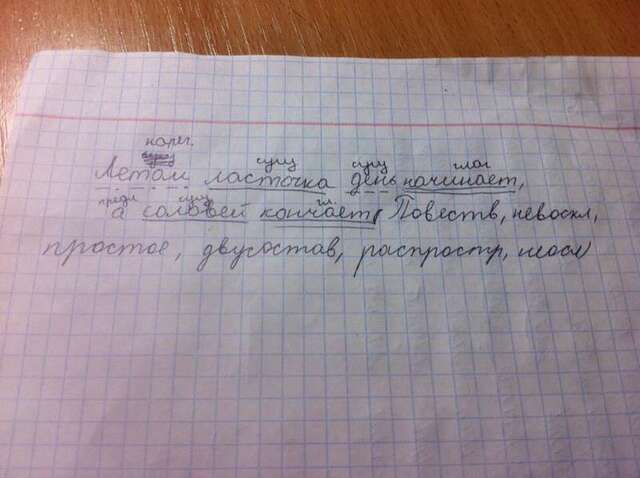 нареч.
сущ сущ глаг
Летом ласточка день начинает,
предл сущ гл.
а соловей кончает( Повеств, невоскл,
простое, двусостав, распростр, неосл